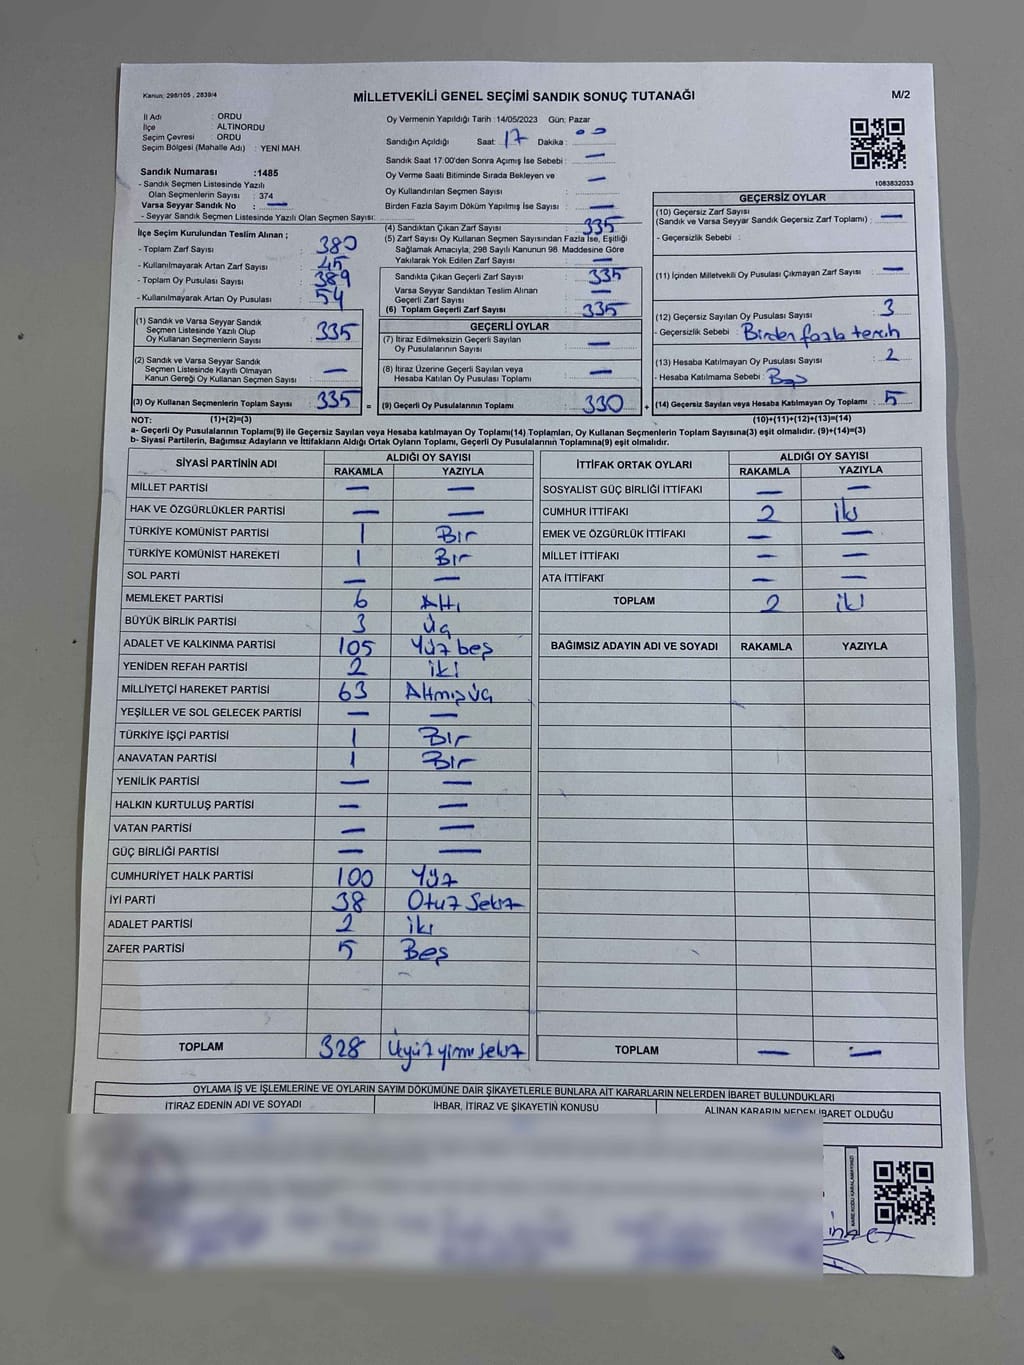 Kanun: 298/105 , 2839/4
MİLLETVEKİLİ GENEL SEÇİMİ SANDIK SONUÇ TUTANAĞI
M/2
İl Adı : ORDU
İlçe : ALTINORDU
Seçim Çevresi : ORDU
Seçim Bölgesi (Mahalle Adı) : YENİ MAH.
Sandık Numarası :1485
- Sandık Seçmen Listesinde Yazılı
Olan Seçmenlerin Sayısı : 374
Varsa Seyyar Sandık No : —
- Seyyar Sandık Seçmen Listesinde Yazılı Olan Seçmen Sayısı:
Oy Vermenin Yapıldığı Tarih :14/05/2023 Gün: Pazar
Sandığın Açıldığı Saat: 17 Dakika: 00
Sandık Saat 17:00'den Sonra Açımış İse Sebebi : —
Oy Verme Saati Bitiminde Sırada Bekleyen ve
Oy Kullandırılan Seçmen Sayısı : —
Birden Fazla Sayım Döküm Yapılmış İse Sayısı : —
1083832033
İlçe Seçim Kurulundan Teslim Alınan ;
- Toplam Zarf Sayısı : 380
- Kullanılmayarak Artan Zarf Sayısı : 45
- Toplam Oy Pusulası Sayısı : 389
- Kullanılmayarak Artan Oy Pusulası : 54
(1) Sandık ve Varsa Seyyar Sandık
Seçmen Listesinde Yazılı Olup
Oy Kullanan Seçmenlerin Sayısı : 335
(2) Sandık ve Varsa Seyyar Sandık
Seçmen Listesinde Kayıtlı Olmayan
Kanun Gereği Oy Kullanan Seçmen Sayısı : —
(3) Oy Kullanan Seçmenlerin Toplam Sayısı : 335
(4) Sandıktan Çıkan Zarf Sayısı : 335
(5) Zarf Sayısı Oy Kullanan Seçmen Sayısından Fazla İse, Eşitliği
Sağlamak Amacıyla, 298 Sayılı Kanunun 98. Maddesine Göre
Yakılarak Yok Edilen Zarf Sayısı : —
Sandıkta Çıkan Geçerli Zarf Sayısı : 335
Varsa Seyyar Sandıktan Teslim Alınan
Geçerli Zarf Sayısı : —
(6) Toplam Geçerli Zarf Sayısı : 335
GEÇERLİ OYLAR
(7) İtiraz Edilmeksizin Geçerli Sayılan
Oy Pusulalarının Sayısı : —
(8) İtiraz Üzerine Geçerli Sayılan veya
Hesaba Katılan Oy Pusulası Toplamı : —
= (9) Geçerli Oy Pusulalarının Toplamı : 330
GEÇERSİZ OYLAR
(10) Geçersiz Zarf Sayısı
(Sandık ve Varsa Seyyar Sandık Geçersiz Zarf Toplamı) : —
- Geçersizlik Sebebi :
(11) İçinden Milletvekili Oy Pusulası Çıkmayan Zarf Sayısı : —
(12) Geçersiz Sayılan Oy Pusulası Sayısı : 3
- Geçersizlik Sebebi : Birden fazla tercih
(13) Hesaba Katılmayan Oy Pusulası Sayısı : 2
- Hesaba Katılmama Sebebi : Boş
+ (14) Geçersiz Sayılan veya Hesaba Katılmayan Oy Toplamı : 5
NOT: (1)+(2)=(3) (10)+(11)+(12)+(13)=(14)
a- Geçerli Oy Pusulalarının Toplamı(9) ile Geçersiz Sayılan veya Hesaba katılmayan Oy Toplamı(14) Toplamları, Oy Kullanan Seçmenlerin Toplam Sayısına(3) eşit olmalıdır. (9)+(14)=(3)
b- Siyasi Partilerin, Bağımsız Adayların ve İttifakların Aldığı Ortak Oyların Toplamı, Geçerli Oy Pusulalarının Toplamına(9) eşit olmalıdır.
SİYASİ PARTİNİN ADI ALDIĞI OY SAYISI
RAKAMLA YAZIYLA
MİLLET PARTİSİ — —
HAK VE ÖZGÜRLÜKLER PARTİSİ — —
TÜRKİYE KOMÜNİST PARTİSİ 1 Bir
TÜRKİYE KOMÜNİST HAREKETİ 1 Bir
SOL PARTİ — —
MEMLEKET PARTİSİ 6 Altı
BÜYÜK BİRLİK PARTİSİ 3 Üç
ADALET VE KALKINMA PARTİSİ 105 Yüz beş
YENİDEN REFAH PARTİSİ 2 iki
MİLLİYETÇİ HAREKET PARTİSİ 63 Altmış üç
YEŞİLLER VE SOL GELECEK PARTİSİ — —
TÜRKİYE İŞÇİ PARTİSİ 1 Bir
ANAVATAN PARTİSİ 1 Bir
YENİLİK PARTİSİ — —
HALKIN KURTULUŞ PARTİSİ — —
VATAN PARTİSİ — —
GÜÇ BİRLİĞİ PARTİSİ — —
CUMHURİYET HALK PARTİSİ 100 Yüz
İYİ PARTİ 38 Otuz Sekiz
ADALET PARTİSİ 2 iki
ZAFER PARTİSİ 5 Beş
TOPLAM 328 Üçyüz yirmi sekiz
İTTİFAK ORTAK OYLARI ALDIĞI OY SAYISI
RAKAMLA YAZIYLA
SOSYALİST GÜÇ BİRLİĞİ İTTİFAKI — —
CUMHUR İTTİFAKI 2 iki
EMEK VE ÖZGÜRLÜK İTTİFAKI — —
MİLLET İTTİFAKI — —
ATA İTTİFAKI — —
TOPLAM 2 iki
BAĞIMSIZ ADAYIN ADI VE SOYADI RAKAMLA YAZIYLA
TOPLAM — —
OYLAMA İŞ VE İŞLEMLERİNE VE OYLARIN SAYIM DÖKÜMÜNE DAİR ŞİKAYETLERLE BUNLARA AİT KARARLARIN NELERDEN İBARET BULUNDUKLARI
İTİRAZ EDENİN ADI VE SOYADI İHBAR, İTİRAZ VE ŞİKAYETİN KONUSU ALINAN KARARIN NEDEN İBARET OLDUĞU
KARE KODU KARALAMAYINIZ!